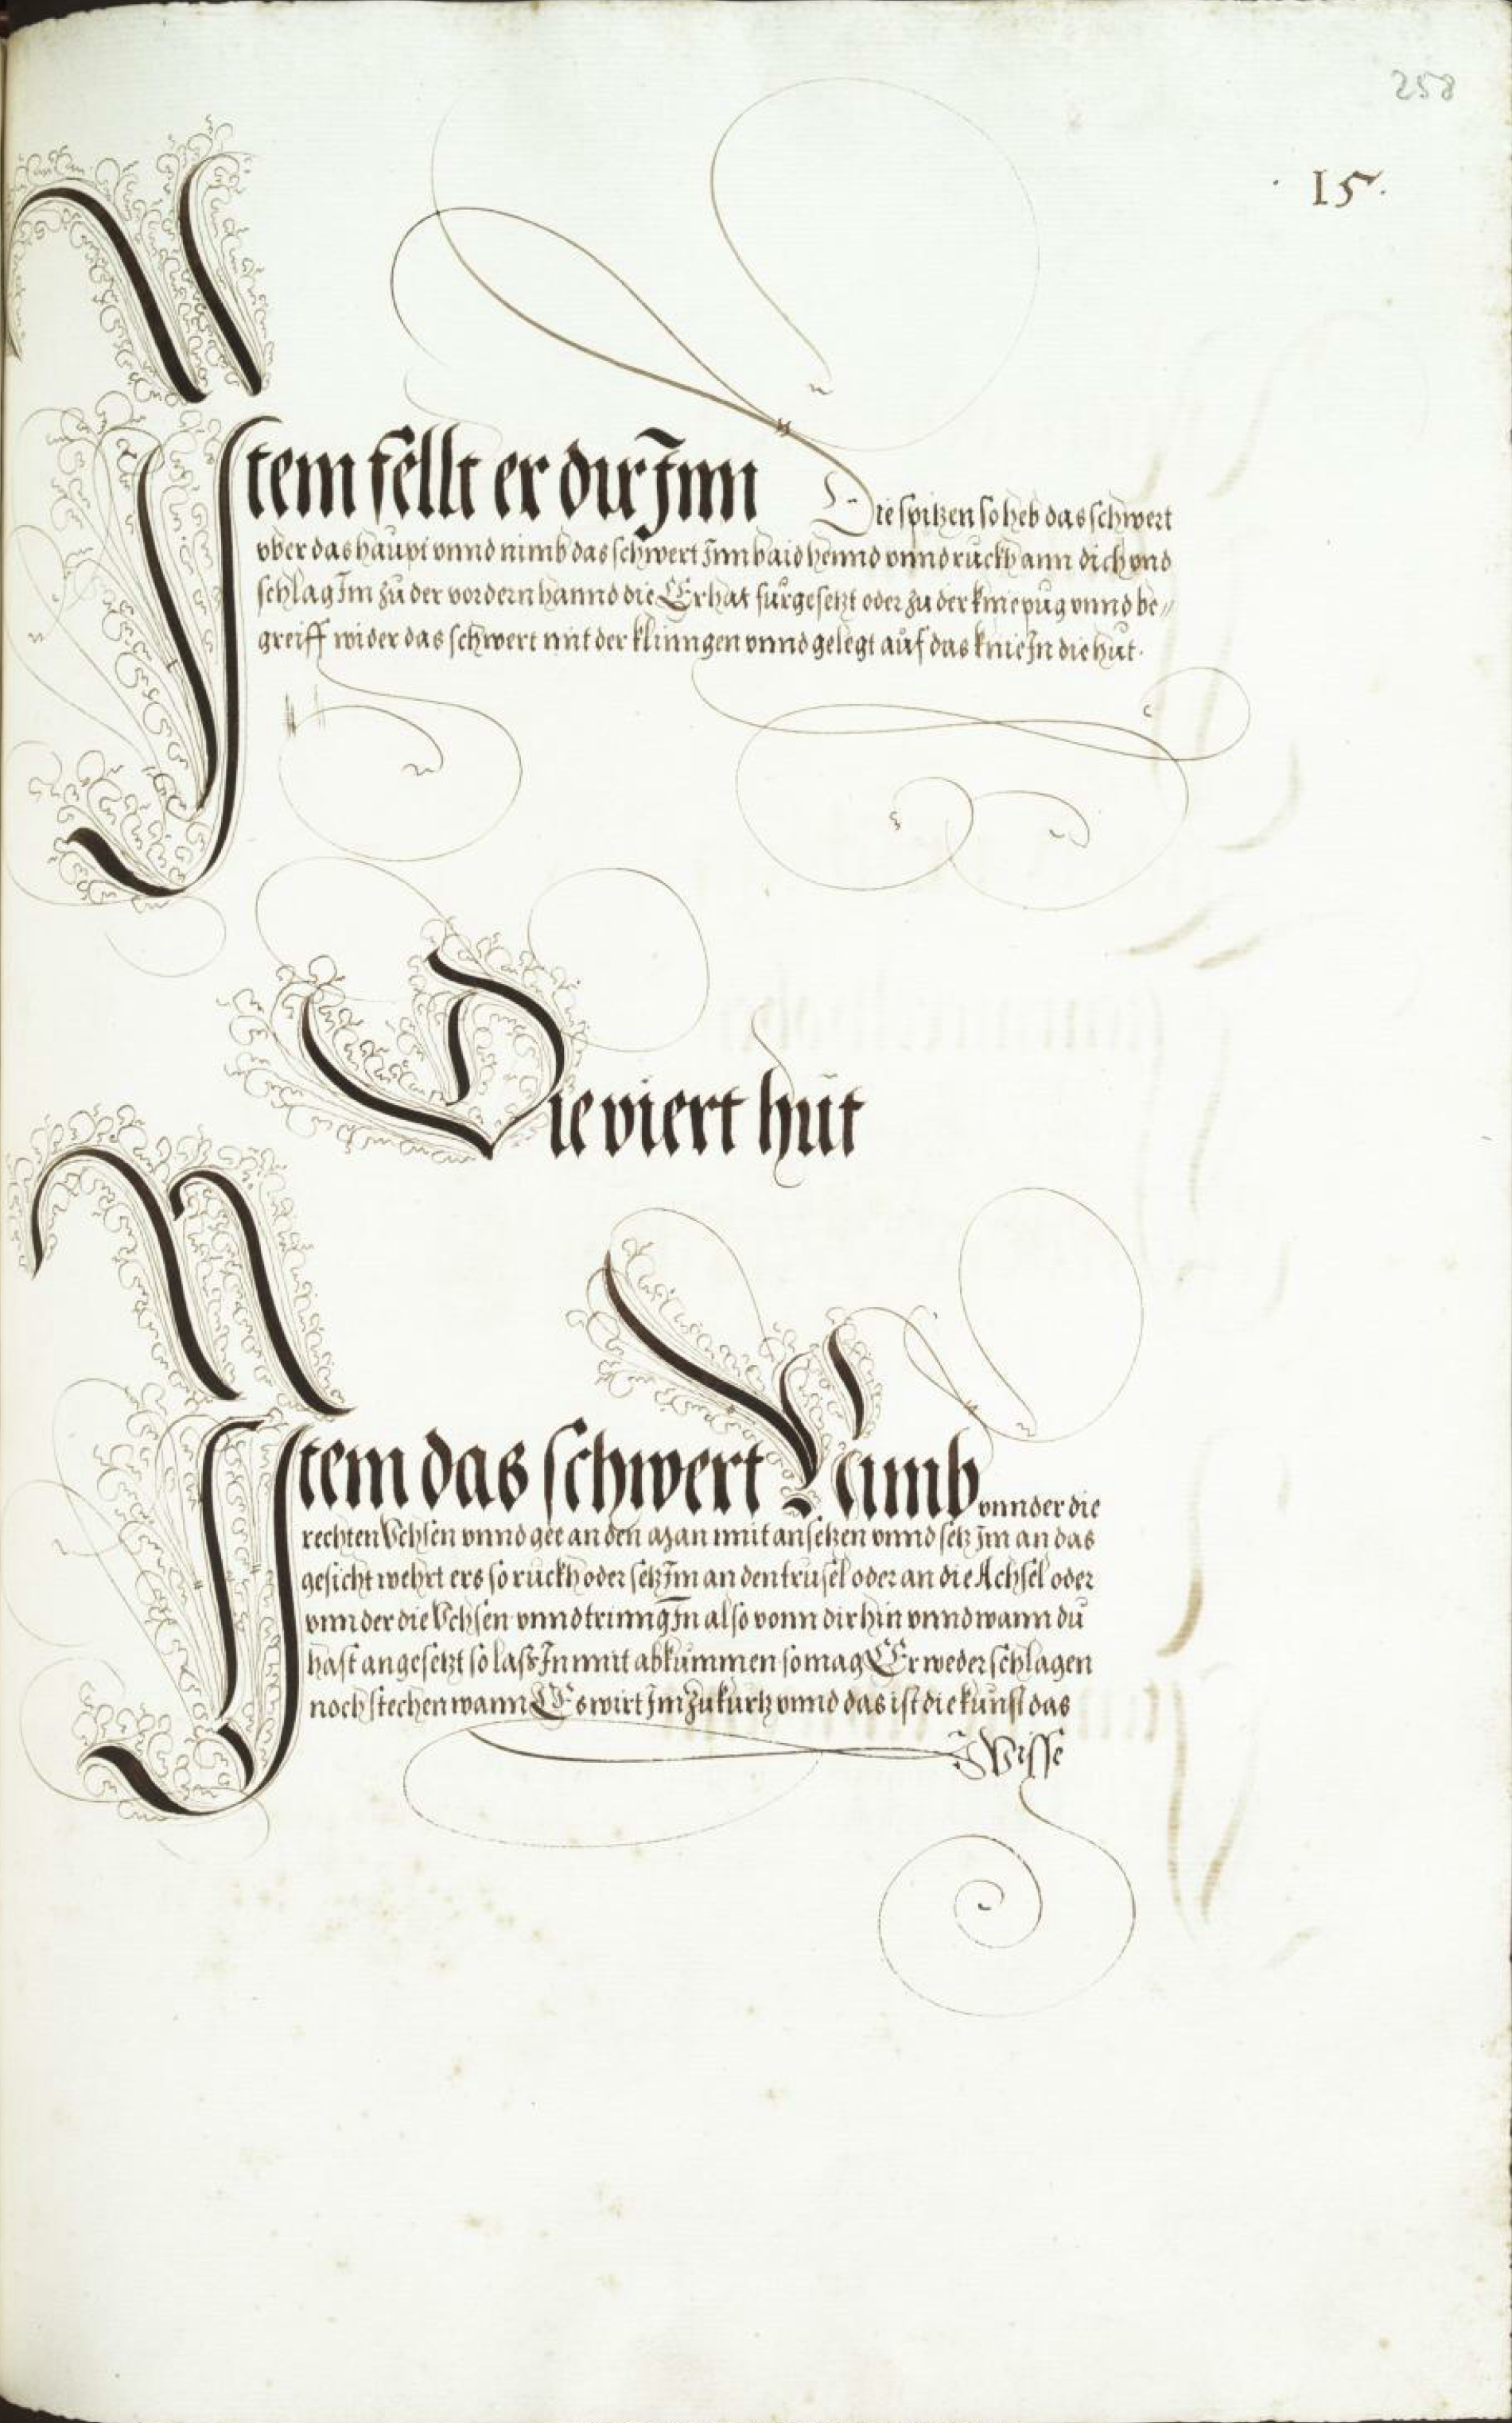 258
· 15 ·
Item fellt er dir Jnn Die spitzen so heb das schwert
vber das haupt vnnd nimb das schwert Jnn baid hennd vnnd ruckh ann dich vnd
schlag Im zu der vordern hannd die Er hat fürgesetzt oder zu der kniepug vnnd be〃
greiff wider das schwert mit der klinngen vnnd gelegt auf das knie In die hut·
Die viert hüt
Item das schwert Nimb vnnder die
rechten Vchsen vnnd gee an den man mit ansetzen vnnd setz Im an das
gesicht wehrt ers so ruckh oder setz Im an den trusel oder an die Achsel oder
vnnder die Vchsen vnnd trinng In also vonn dir hin vnnd wann du
hast angesetzt so lass In nnit abkummen so mag Er weder schlagen
noch stechen wann Es wirt Im zu kurtz vnnd das ist die kunst das
Wisse